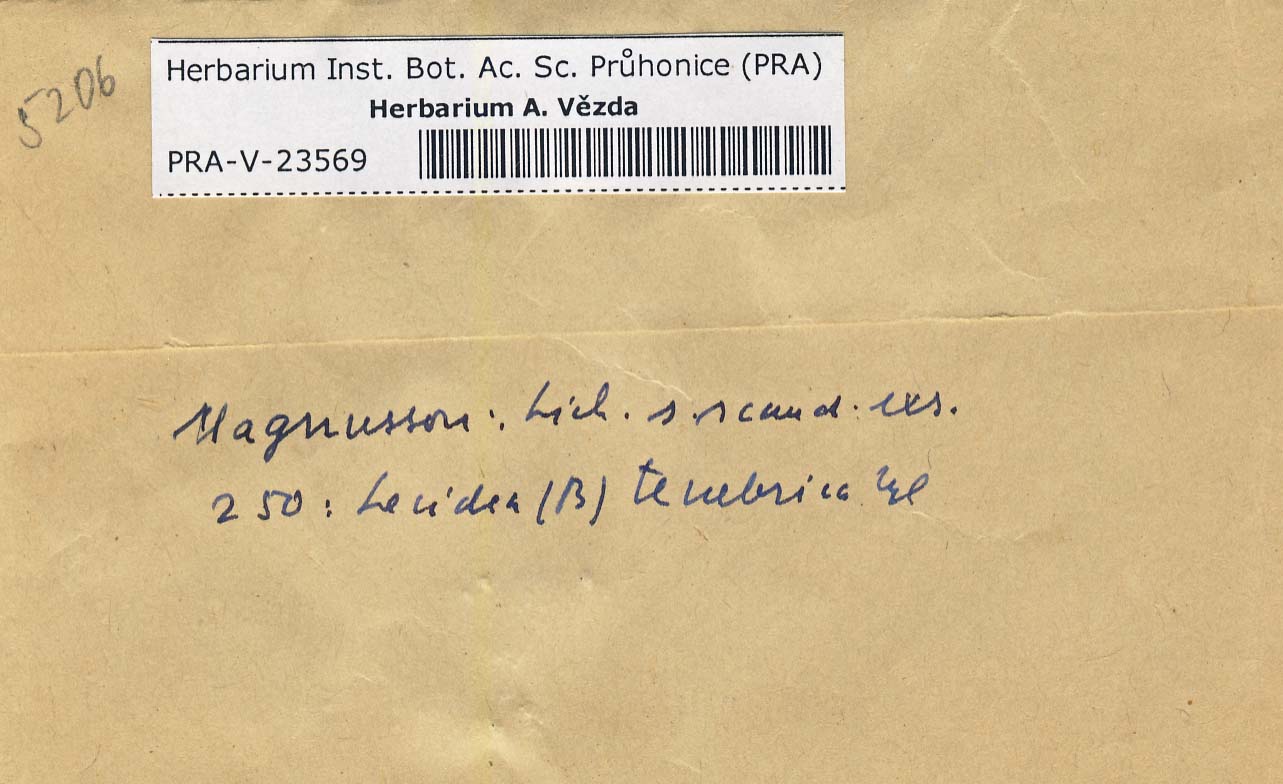 5206
Herbarium Inst. Bot. Ac. Sc. Průhonice (PRA)
Herbarium A. Vězda
PRA-V-23569
Magnusson: Lich. s. scand. exs.
250: Lecidea (B) tenebrica Nyl